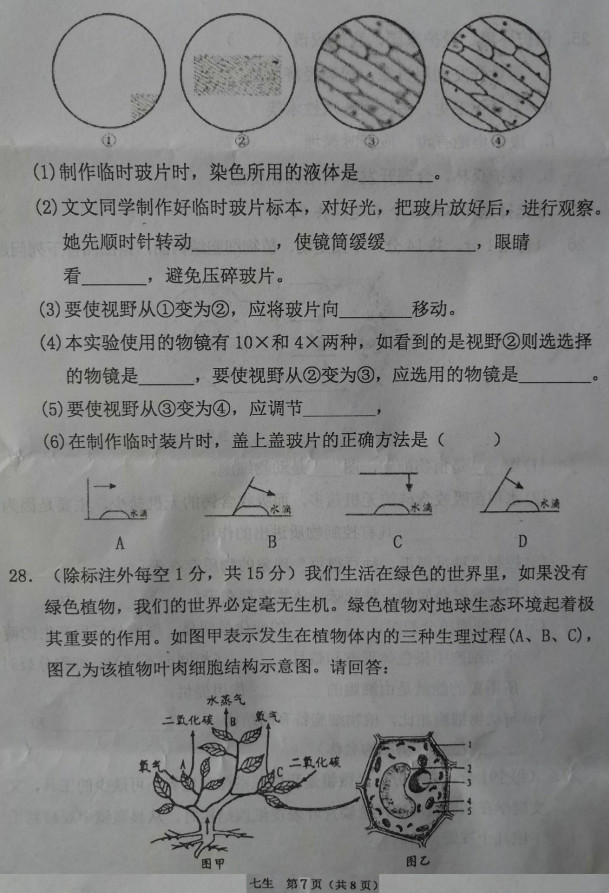 ① ② ③ ④
(1)制作临时玻片时，染色所用的液体是________。
(2)文文同学制作好临时玻片标本，对好光，把玻片放好后，进行观察。
她先顺时针转动________，使镜筒缓缓________，眼睛
看______，避免压碎玻片。
(3)要使视野从①变为②，应将玻片向______移动。
(4)本实验使用的物镜有10×和4×两种，如看到的是视野②则选选择
的物镜是_____，要使视野从②变为③，应选用的物镜是_______。
(5)要使视野从③变为④，应调节_______，
(6)在制作临时装片时，盖上盖玻片的正确方法是（　　）
水滴 水滴 水滴 水滴
A B C D
28. （除标注外每空1分，共15分）我们生活在绿色的世界里，如果没有
绿色植物，我们的世界必定毫无生机。绿色植物对地球生态环境起着极
其重要的作用。如图甲表示发生在植物体内的三种生理过程(A、B、C)，
图乙为该植物叶肉细胞结构示意图。请回答：
水蒸气
二氧化碳 B 氧气
氧气 A C 二氧化碳
1
2
3
4
5
图甲 图乙
七生 第7页（共8页）